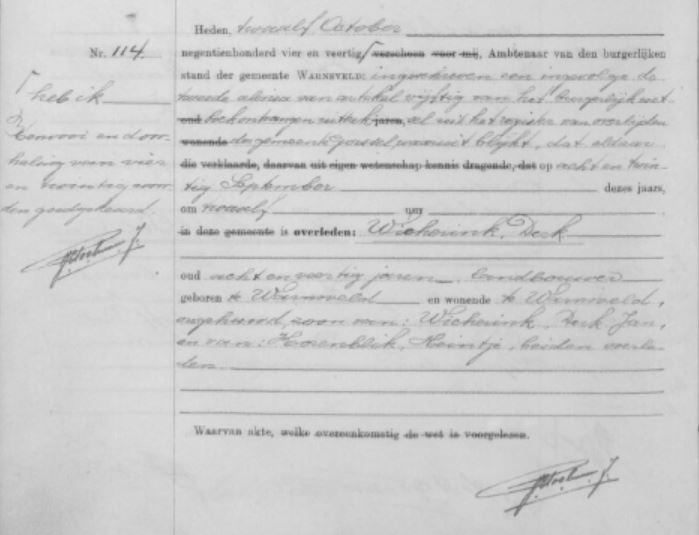 Nr. 114.
heb ik
Renvooi en door-
haling van vier
en twintig woor-
den goedgekeurd.
Heden, twaalf October
negentienhonderd vier en veertig, verscheen voor mij, Ambtenaar van den burgerlijken
stand der gemeente WARNSVELD: ingeschreven een ingevolge de
tweede alinea van artikel vijftig van het burgerlijk wet-
oud boek ontvangen uittrek- jaren, sel uit het register van overlijden
wonende der gemeente Gorssel waaruit blijkt, dat aldaar
die verklaarde, daarvan uit eigen wetenschap kennis dragende, dat op acht en twin-
tig September dezes jaars,
om twaalf uur
in deze gemeente is overleden: Wicherink, Derk
oud acht en veertig jaren, landbouwer
geboren te Warnsveld en wonende te Warnsveld,
ongehuwd, zoon van: Wicherink, Derk Jan,
en van: , Heintje, beiden overle-
den.
Waarvan akte, welke overeenkomstig de wet is voorgelezen.